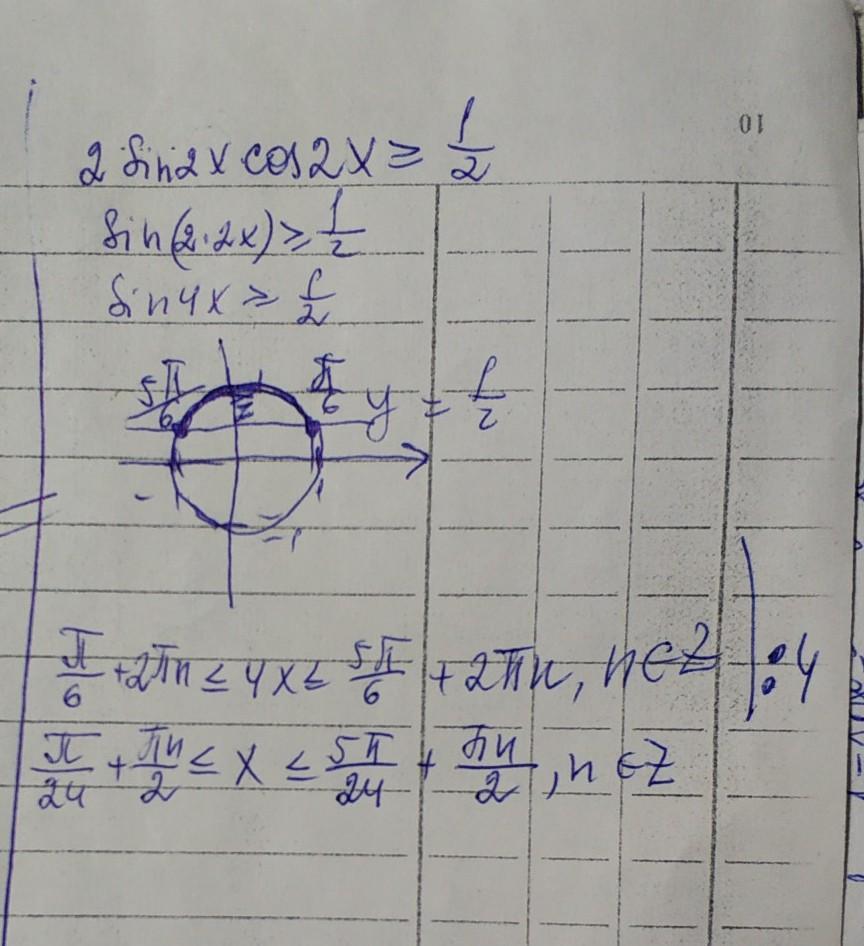 10
2 sin2x cos2x ≥ 1/2
sin(2·2x) ≥ 1/2
sin4x ≥ 1/2
5π/6 π/6 y = 1/2
- 1
-1
π/6 + 2πn ≤ 4x ≤ 5π/6 + 2πn, n ∈ Z | : 4
π/24 + πn/2 ≤ x ≤ 5π/24 + πn/2, n ∈ Z